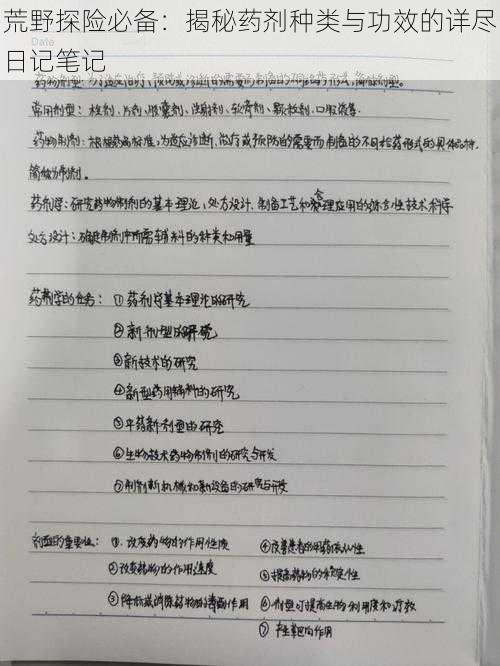 荒野探险必备：揭秘药剂种类与功效的详尽
日记笔记
药物剂型：为适应治疗、预防或诊断的需要而制备的不同给药形式，简称剂型。
常用剂型：栓剂、片剂、胶囊剂、注射剂、软膏剂、颗粒剂、口服溶液
药物制剂：根据药品标准，为适应诊断、治疗或预防的需要而制备的不同给药形式的具体品种，
简称为制剂。
药剂学：研究药物制剂的基本理论、处方设计、制备工艺和合理应用的综合性技术科学
处方设计：确定制剂中所需辅料的种类和用量
药剂学的任务：①药剂学基本理论的研究
②新剂型的研究
③新技术的研究
④新型药用辅料的研究
⑤中药新剂型的研究
⑥生物技术药物制剂的研究与开发
⑦制剂新机械和新设备的研究与开发
剂型的重要性：①改变药物的作用性质 ④改善患者的用药依从性
②改变药物的作用速度 ⑤提高药物的稳定性
③降低或消除药物的毒副作用 ⑥剂型可提高生物利用度和疗效
⑦产生靶向作用